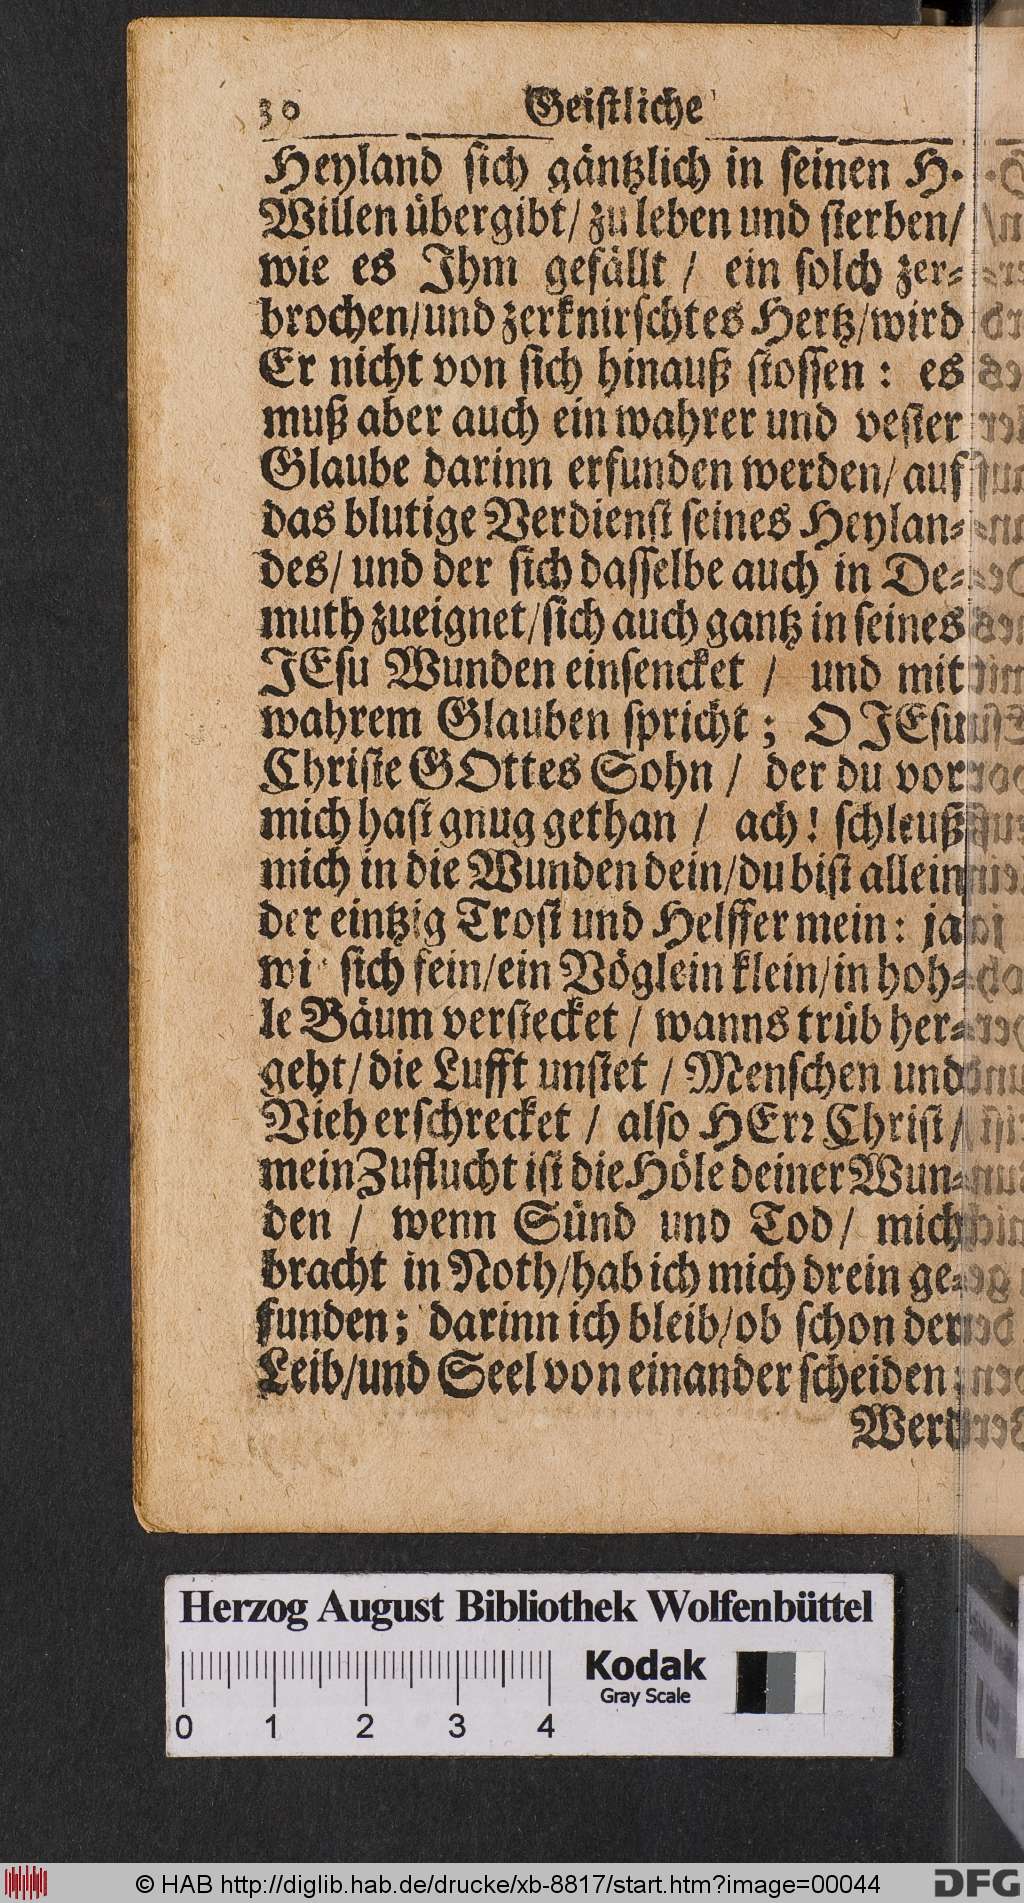 30 Geistliche
Heyland sich gäntzlich in seinen H.
Willen übergibt/ zu leben und sterben/
wie es Ihm gefällt / ein solch zer-
brochen/und zerknirschtes Hertz/wird
Er nicht von sich hinauß stossen : es
muß aber auch ein wahrer und vester
Glaube darinn erfunden werden/ auf
das blutige Verdienst seines Heylan-
des/ und der sich dasselbe auch in De-
muth zueignet/sich auch gantz in seines
JEsu Wunden einsencket / und mit
wahrem Glauben spricht; O JEsu
Christe GOttes Sohn / der du vor
mich hast gnug gethan / ach! schleuß
mich in die Wunden dein/du bist allein
der eintzig Trost und Helffer mein: ja
wi sich fein/ein Vöglein klein/in hoh-
le Bäum verstecket / wanns trüb her-
geht/die Lufft unstet / Menschen und
Vieh erschrecket / also HErr Christ/
mein Zuflucht ist die Höle deiner Wun-
den / wenn Sünd und Tod/ mich
bracht in Noth/hab ich mich drein ge-
funden; darinn ich bleib/ob schon der
Leib/und Seel von einander scheiden;
Werd
Herzog August Bibliothek Wolfenbüttel
Kodak
Gray Scale
0 1 2 3 4
© HAB http://diglib.hab.de/drucke/xb-8817/start.htm?image=00044
DFG